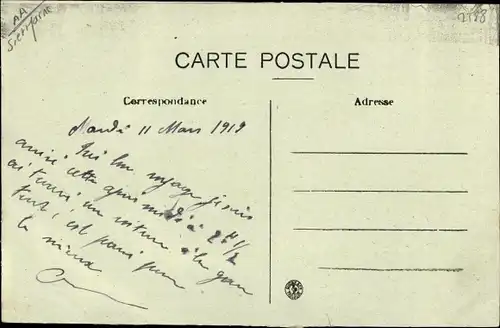 AA
2898
CARTE POSTALE
Correspondance
Adresse
Mardi 11 Mars 1919
bon voyage je suis
arrivé cette après midi à 2H 1/2
ai trouvé un voiture à la gare
tout c'est passé pour
le mieux